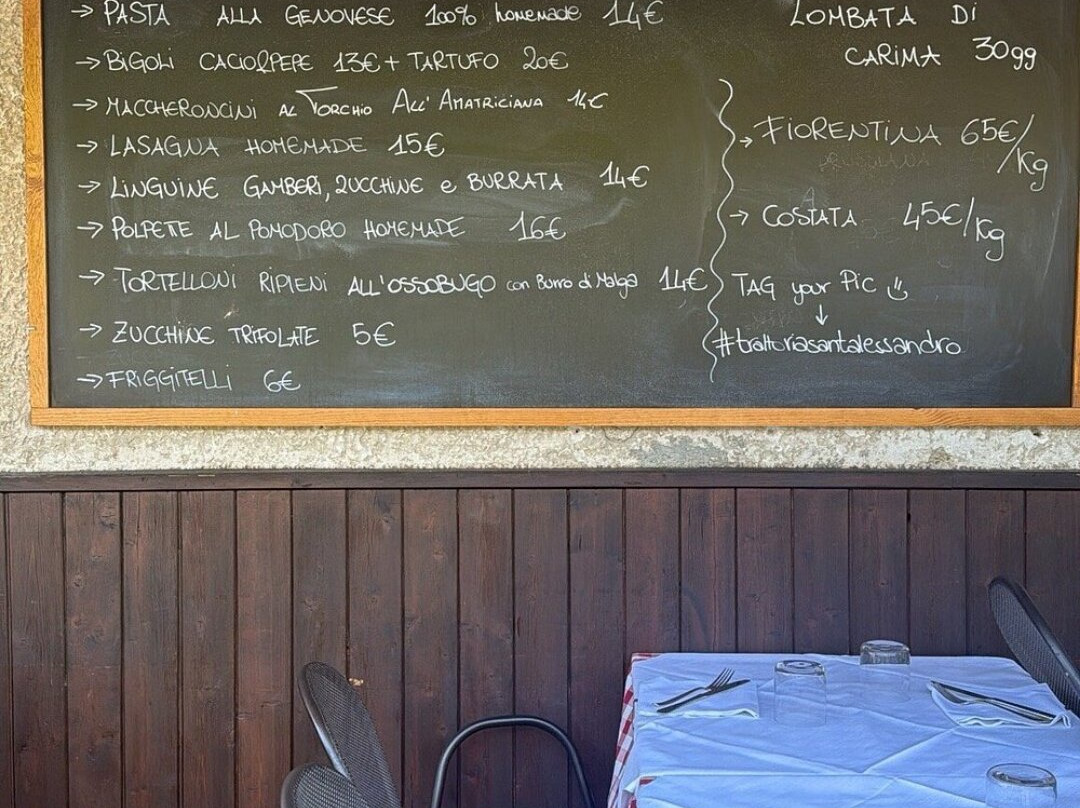 → PASTA ALLA GENOVESE 100% homemade 14€
→ BIGOLI CACIO&PEPE 13€ + TARTUFO 20€
→ MACCHERONCINI AL TORCHIO ALL'AMATRICIANA 14€
→ LASAGNA HOMEMADE 15€
→ LINGUINE GAMBERI, ZUCCHINE e BURRATA 14€
→ POLPETE AL POMODORO HOMEMADE 16€
→ TORTELLONI RIPIENI ALL'OSSOBUGO con Burro di Malga 14€
→ ZUCCHINE TRIFOLATE 5€
→ FRIGGITELLI 6€
LOMBATA DI
CARIMA 30gg
→ FIORENTINA 65€/Kg
→ COSTATA 45€/Kg
TAG your PIC
↓
#trattoriasantalessandro